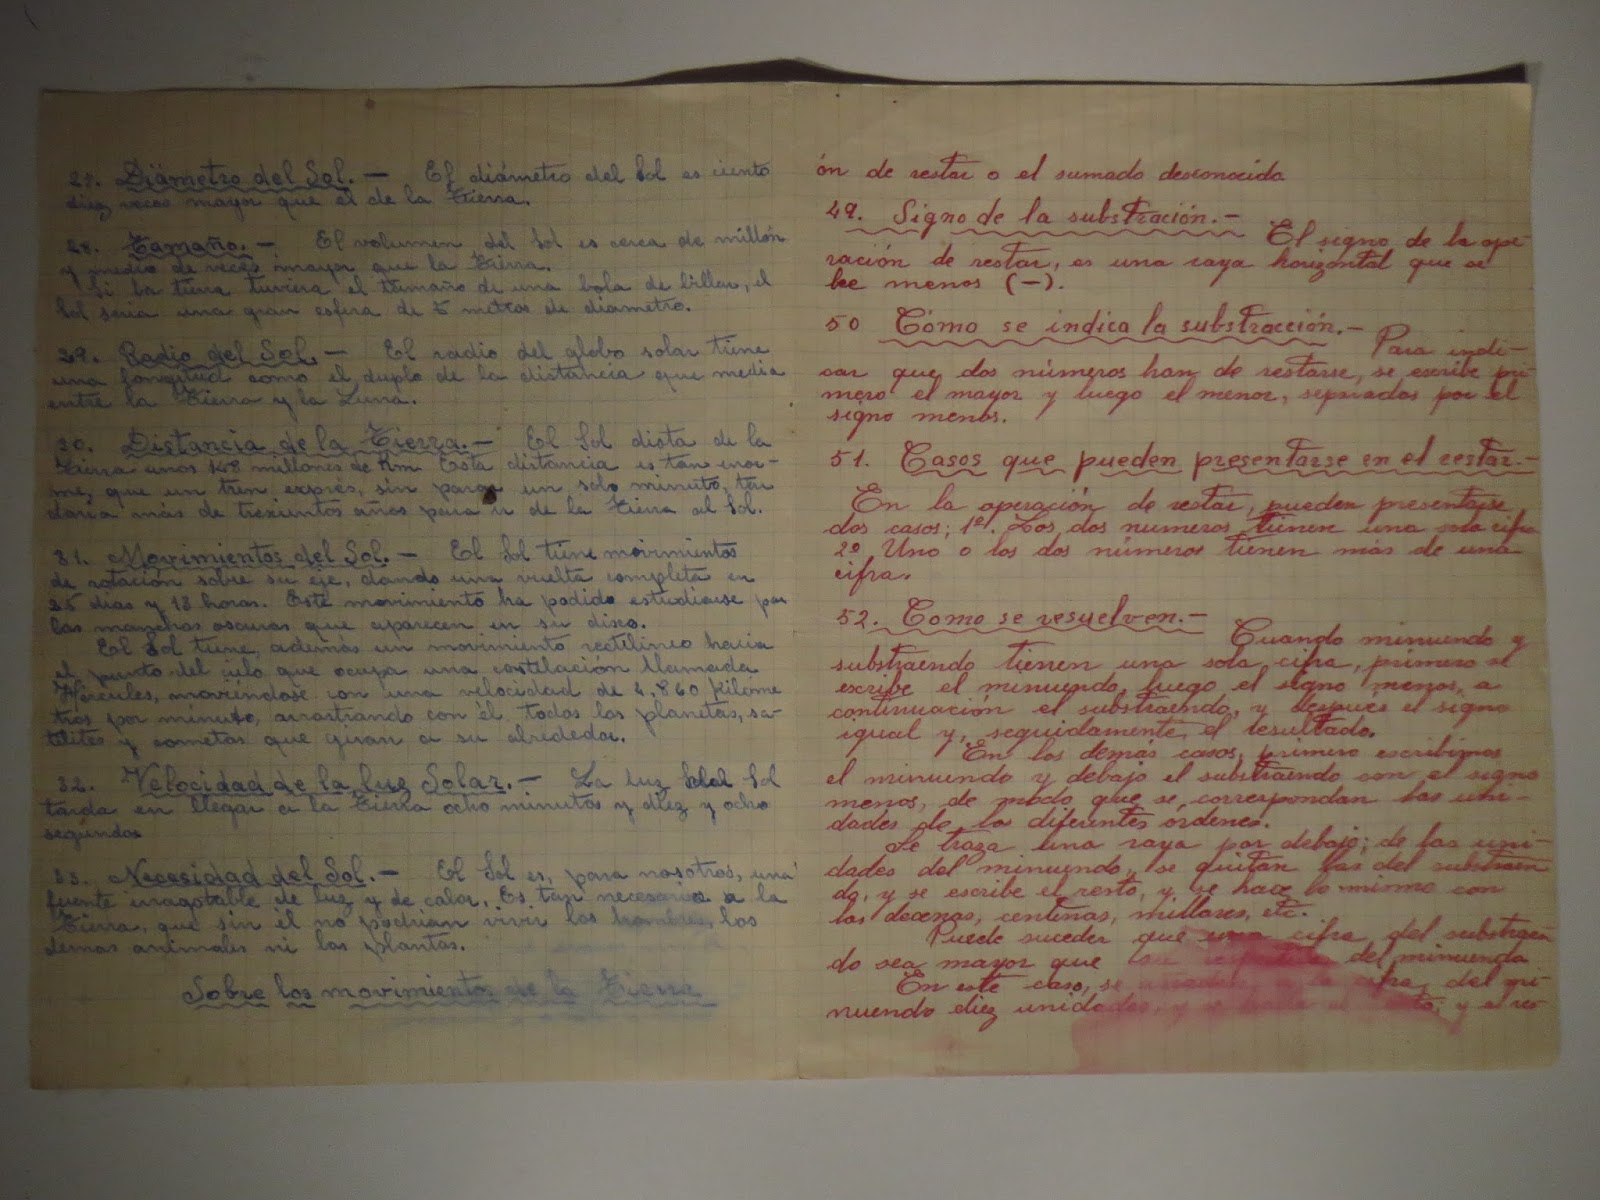 27. Diámetro del Sol.— El diámetro del Sol es ciento
diez veces mayor que el de la Tierra.
28. Tamaño.— El volumen del Sol es cerca de millón
y medio de veces mayor que la Tierra.
Si la tierra tuviera el tamaño de una bola de billar, el
Sol seria una gran esfera de 5 metros de diametro.
29. Radio del Sol.— El radio del globo solar tiene
una longitud como el duplo de la distancia que media
entre la Tierra y la Luna.
30. Distancia de la Tierra.— El Sol dista de la
Tierra unos 148 millones de Km. Esta distancia es tan enor-
me, que un tren exprés, sin parar un solo minuto, tar
daria más de trescientos años para ir de la Tierra al Sol.
31. Movimientos del Sol.— El Sol tiene movimientos
de rotación sobre su eje, dando una vuelta completa en
25 dias y 13 horas. Este movimiento ha podido estudiarse por
las manchas oscuras que aparecen en su disco.
El Sol tiene, además un movimiento rectilineo hacia
el punto del cielo que ocupa una costelación llamada
Hércules, moviéndose con una velocidad de 4.860 Kilóme
tros por minuto, arrastrando con él, todos los planetas, sa-
télites y cometas que giran a su alrededor.
32. Velocidad de la luz Solar.— La luz del Sol
tarda en llegar a la Tierra ocho minutos y diez y ocho
segundos
33. Necesidad del Sol.— El Sol es, para nosotros, una
fuente inagotable de luz y de calor. Es tan necesario a la
Tierra, que sin él no podrian vivir los hombres, los
demas animales ni las plantas.
Sobre los movimientos de la Tierra
ón de restar o el sumado desconocido
49. Signo de la substración.—
El signo de la ope-
ración de restar, es una raya horizontal que se
lee menos (—).
50 Cómo se indica la substracción.—
Para indi-
car que dos números han de restarse, se escribe pri
mero el mayor y luego el menor, separados por el
signo menos.
51. Casos que pueden presentarse en el restar.—
En la operación de restar, pueden presentarse
dos casos; 1º. Los dos numeros tienen una sola cifra
2º Uno o los dos números tienen más de una
cifra.
52. Como se resuelven.—
Cuando minuendo y
substraendo tienen una sola cifra, primero se
escribe el minuendo, luego el signo menos, a
continuación el substraendo, y despues el signo
igual y, seguidamente el resultado.
En los demás casos, primero escribimos
el minuendo y debajo el substraendo con el signo
menos, de modo que se correspondan las uni-
dades de los diferentes órdenes.
Se traza una raya por debajo; de las uni-
dades del minuendo, se quitan las del substraen
do, y se escribe el resto, y se hace lo mismo con
las decenas, centenas, millares, etc.
Puede suceder que una cifra del substraen
do sea mayor que del minuendo
En este caso, se a la cifra del mi-
nuendo diez unidades, y se y al res